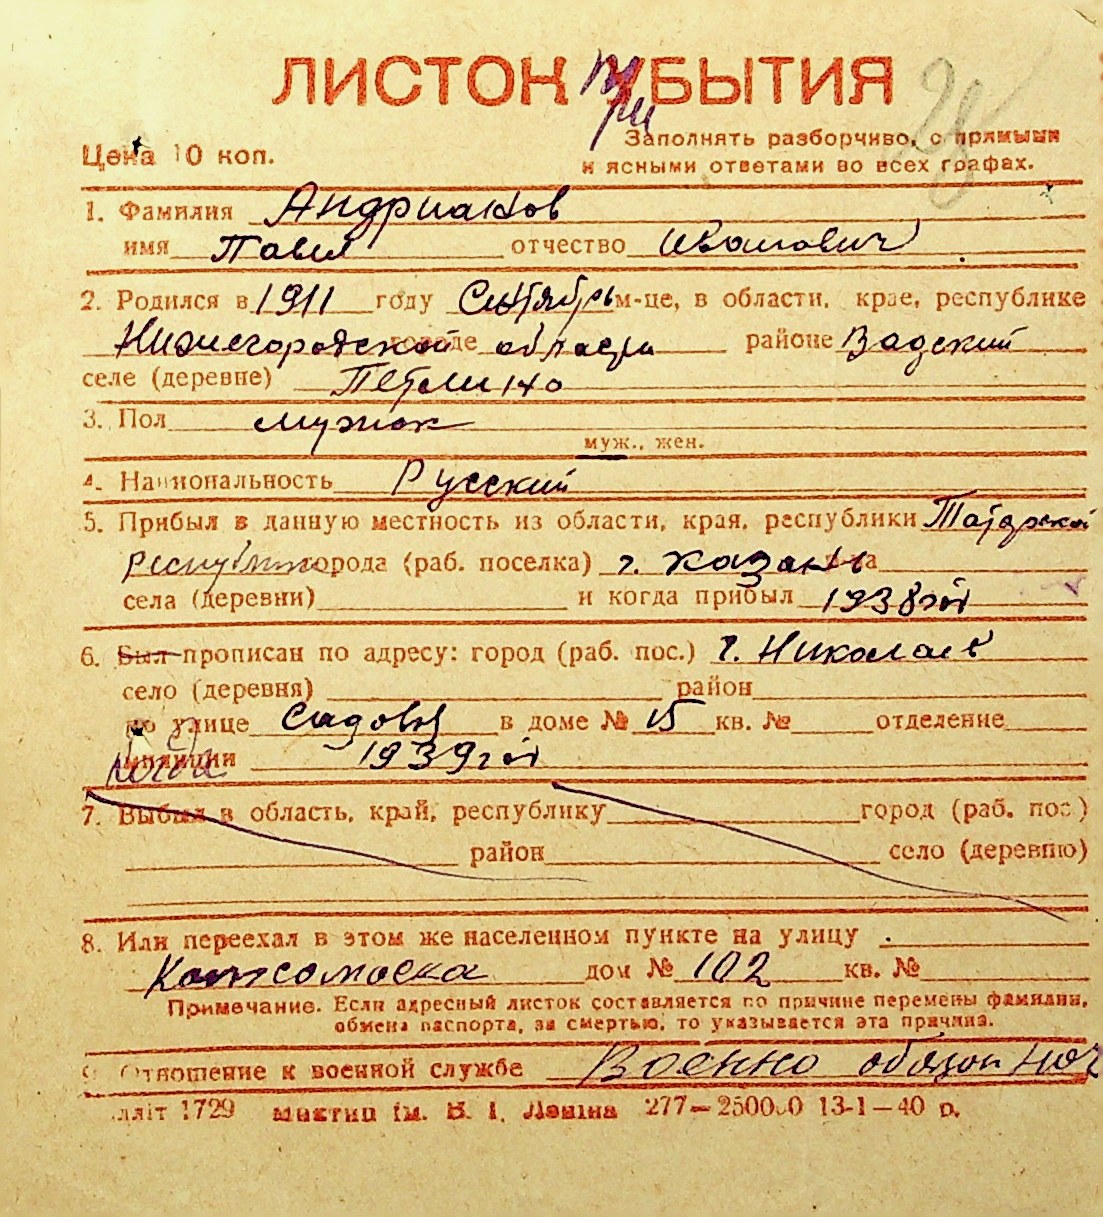 ЛИСТОК ПРИБЫТИЯ
Цена 10 коп.
Заполнять разборчиво, с прямыми
и ясными ответами во всех графах.
1. Фамилия Андрианов
имя Павел отчество Иванович
2. Родился в 1911 году Сентябрь м-це, в области, крае, республике
Нижегородской городе области районе Вадский
селе (деревне) Петлино
3. Пол мужск
муж., жен.
4. Национальность Русский
5. Прибыл в данную местность из области, края, республики Татарской
республики города (раб. поселка) г. Казань
села (деревни) и когда прибыл 1938 год
6. Был прописан по адресу: город (раб. пос.) г. Николаев
село (деревня) район
по улице Садовая в доме № 15 кв. № отделение
милиции когда 1939 год
7. Выбыл в область, край, республику город (раб. пос.)
район село (деревню)
8. Или переехал в этом же населенном пункте на улицу
дом № 102 кв. №
Примечание. Если адресный листок составляется по причине перемены фамилии,
обмена паспорта, за смертью, то указывается эта причина.
9. Отношение к военной службе Военно обязан ног
літ 1729 им. В. І. Леніна 277—250000 13-1—40 р.